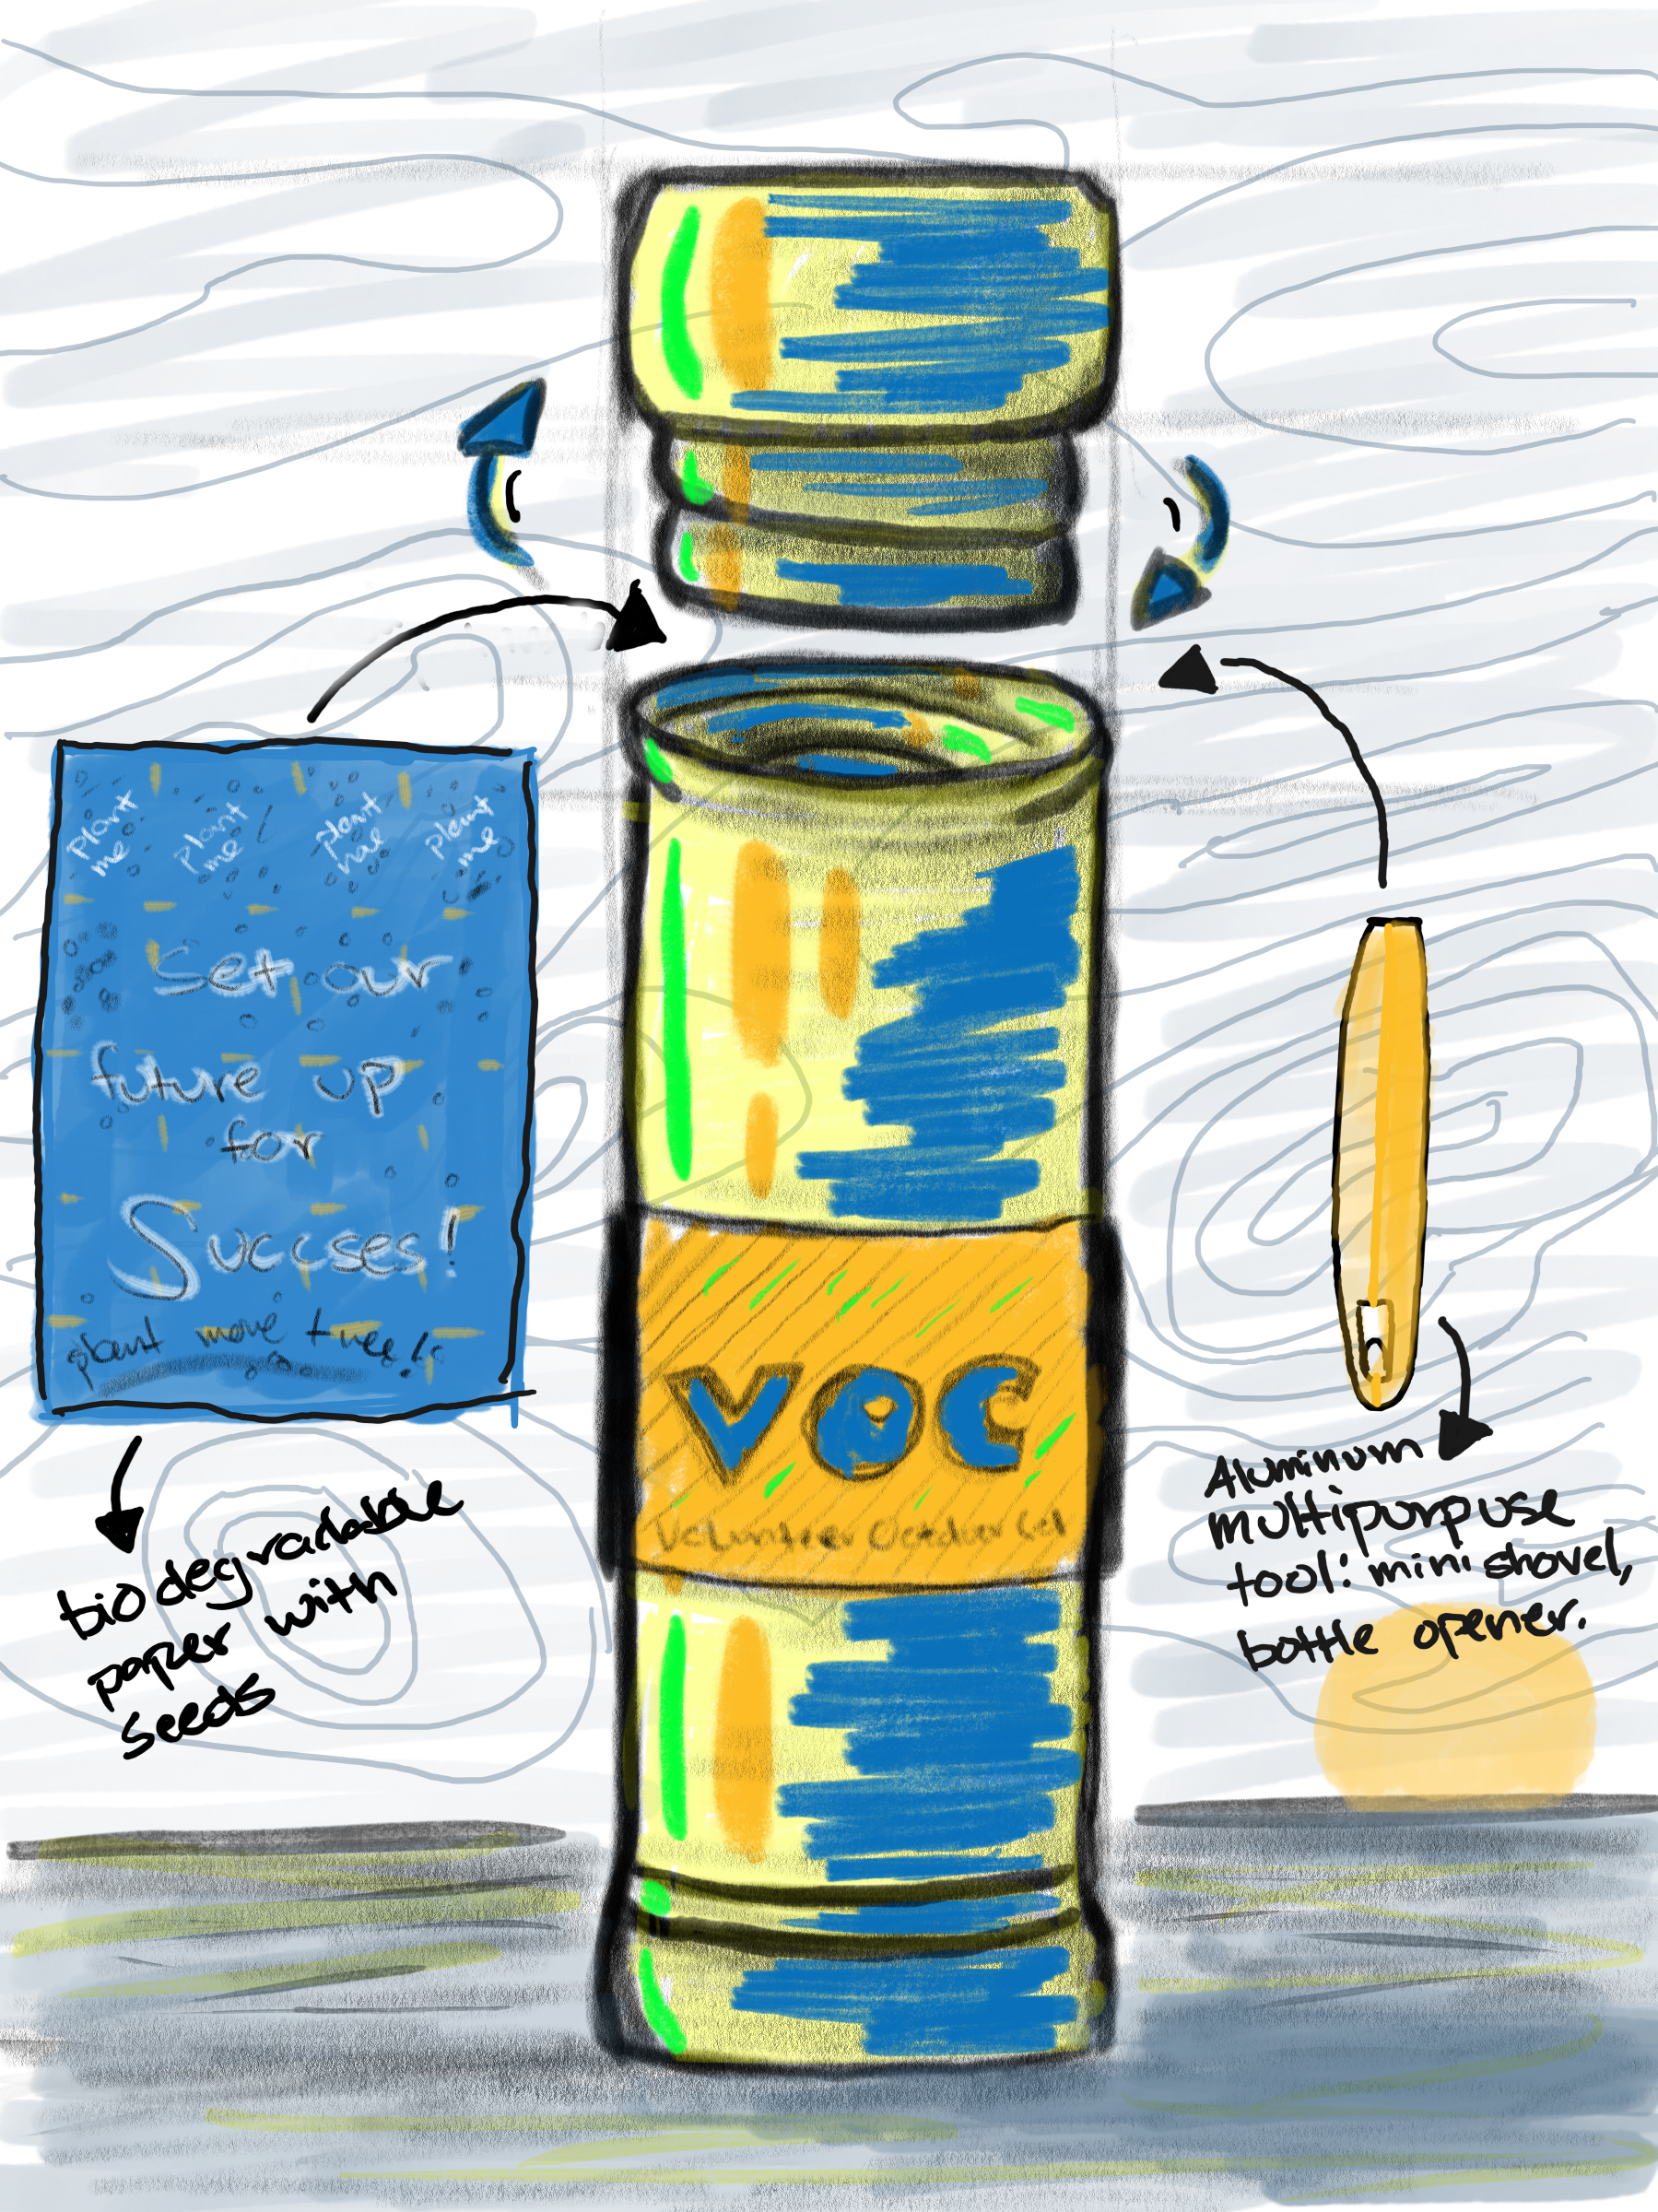 plant
me
plant
me
plant
me
plant
me
set our
future up
for
Succses!
plant more tree!
biodegradable
paper with
seeds
VOC
Volunteer October
Aluminum
multipurpuse
tool: mini shovel,
bottle opener.